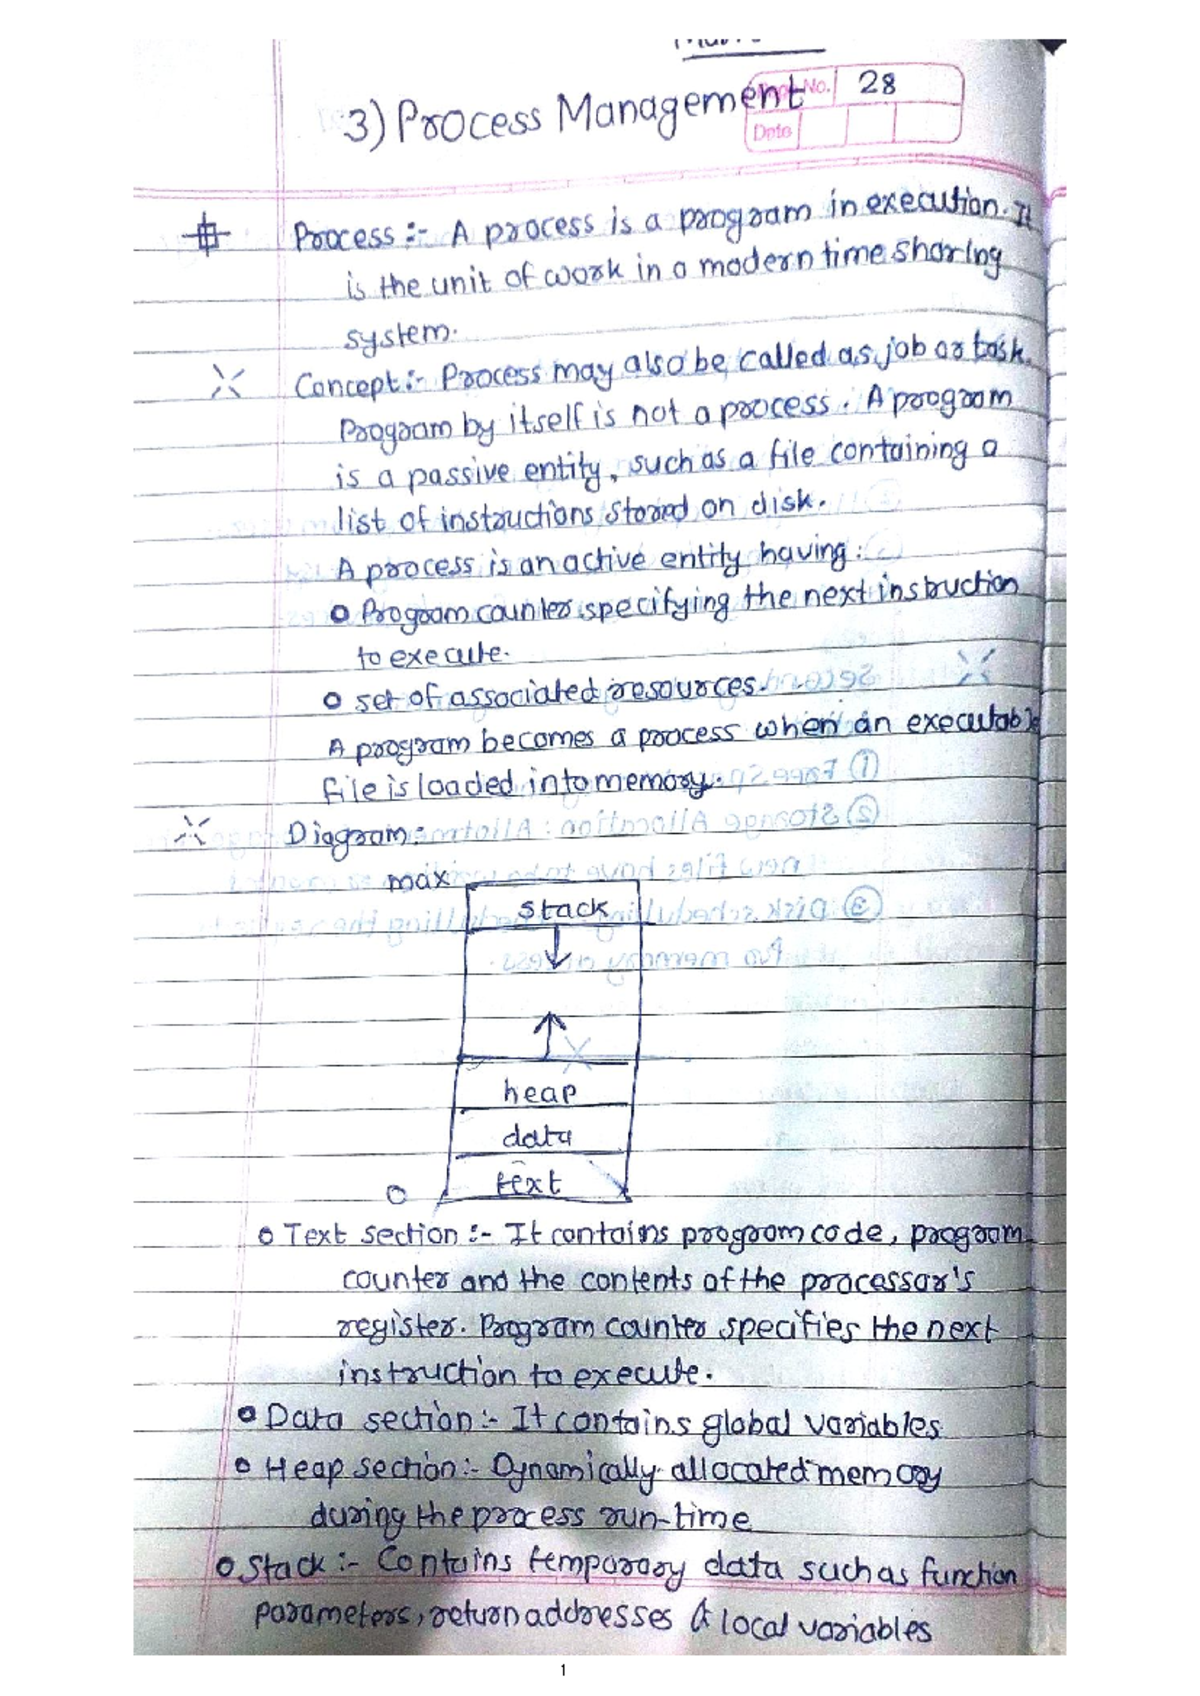 Page No. 28
3) Process Management
Date
Process :- A process is a program in execution. It
is the unit of work in a modern time sharing
system.
Concept :- Process may also be called as job or task.
Program by itself is not a process. A program
is a passive entity, such as a file containing a
list of instructions stored on disk.
A process is an active entity having :
o Program counter specifying the next instruction
to execute.
o set of associated resources.
A program becomes a process when an executable
file is loaded into memory.
Diagram :
max
stack
heap
data
text
0
o Text section :- It contains program code, program
counter and the contents of the processor's
register. Program counter specifies the next
instruction to execute.
o Data section :- It contains global variables
o Heap section :- Dynamically allocated memory
during the process run-time
o Stack :- Contains temporary data such as function
parameters, return addresses & local variables
1